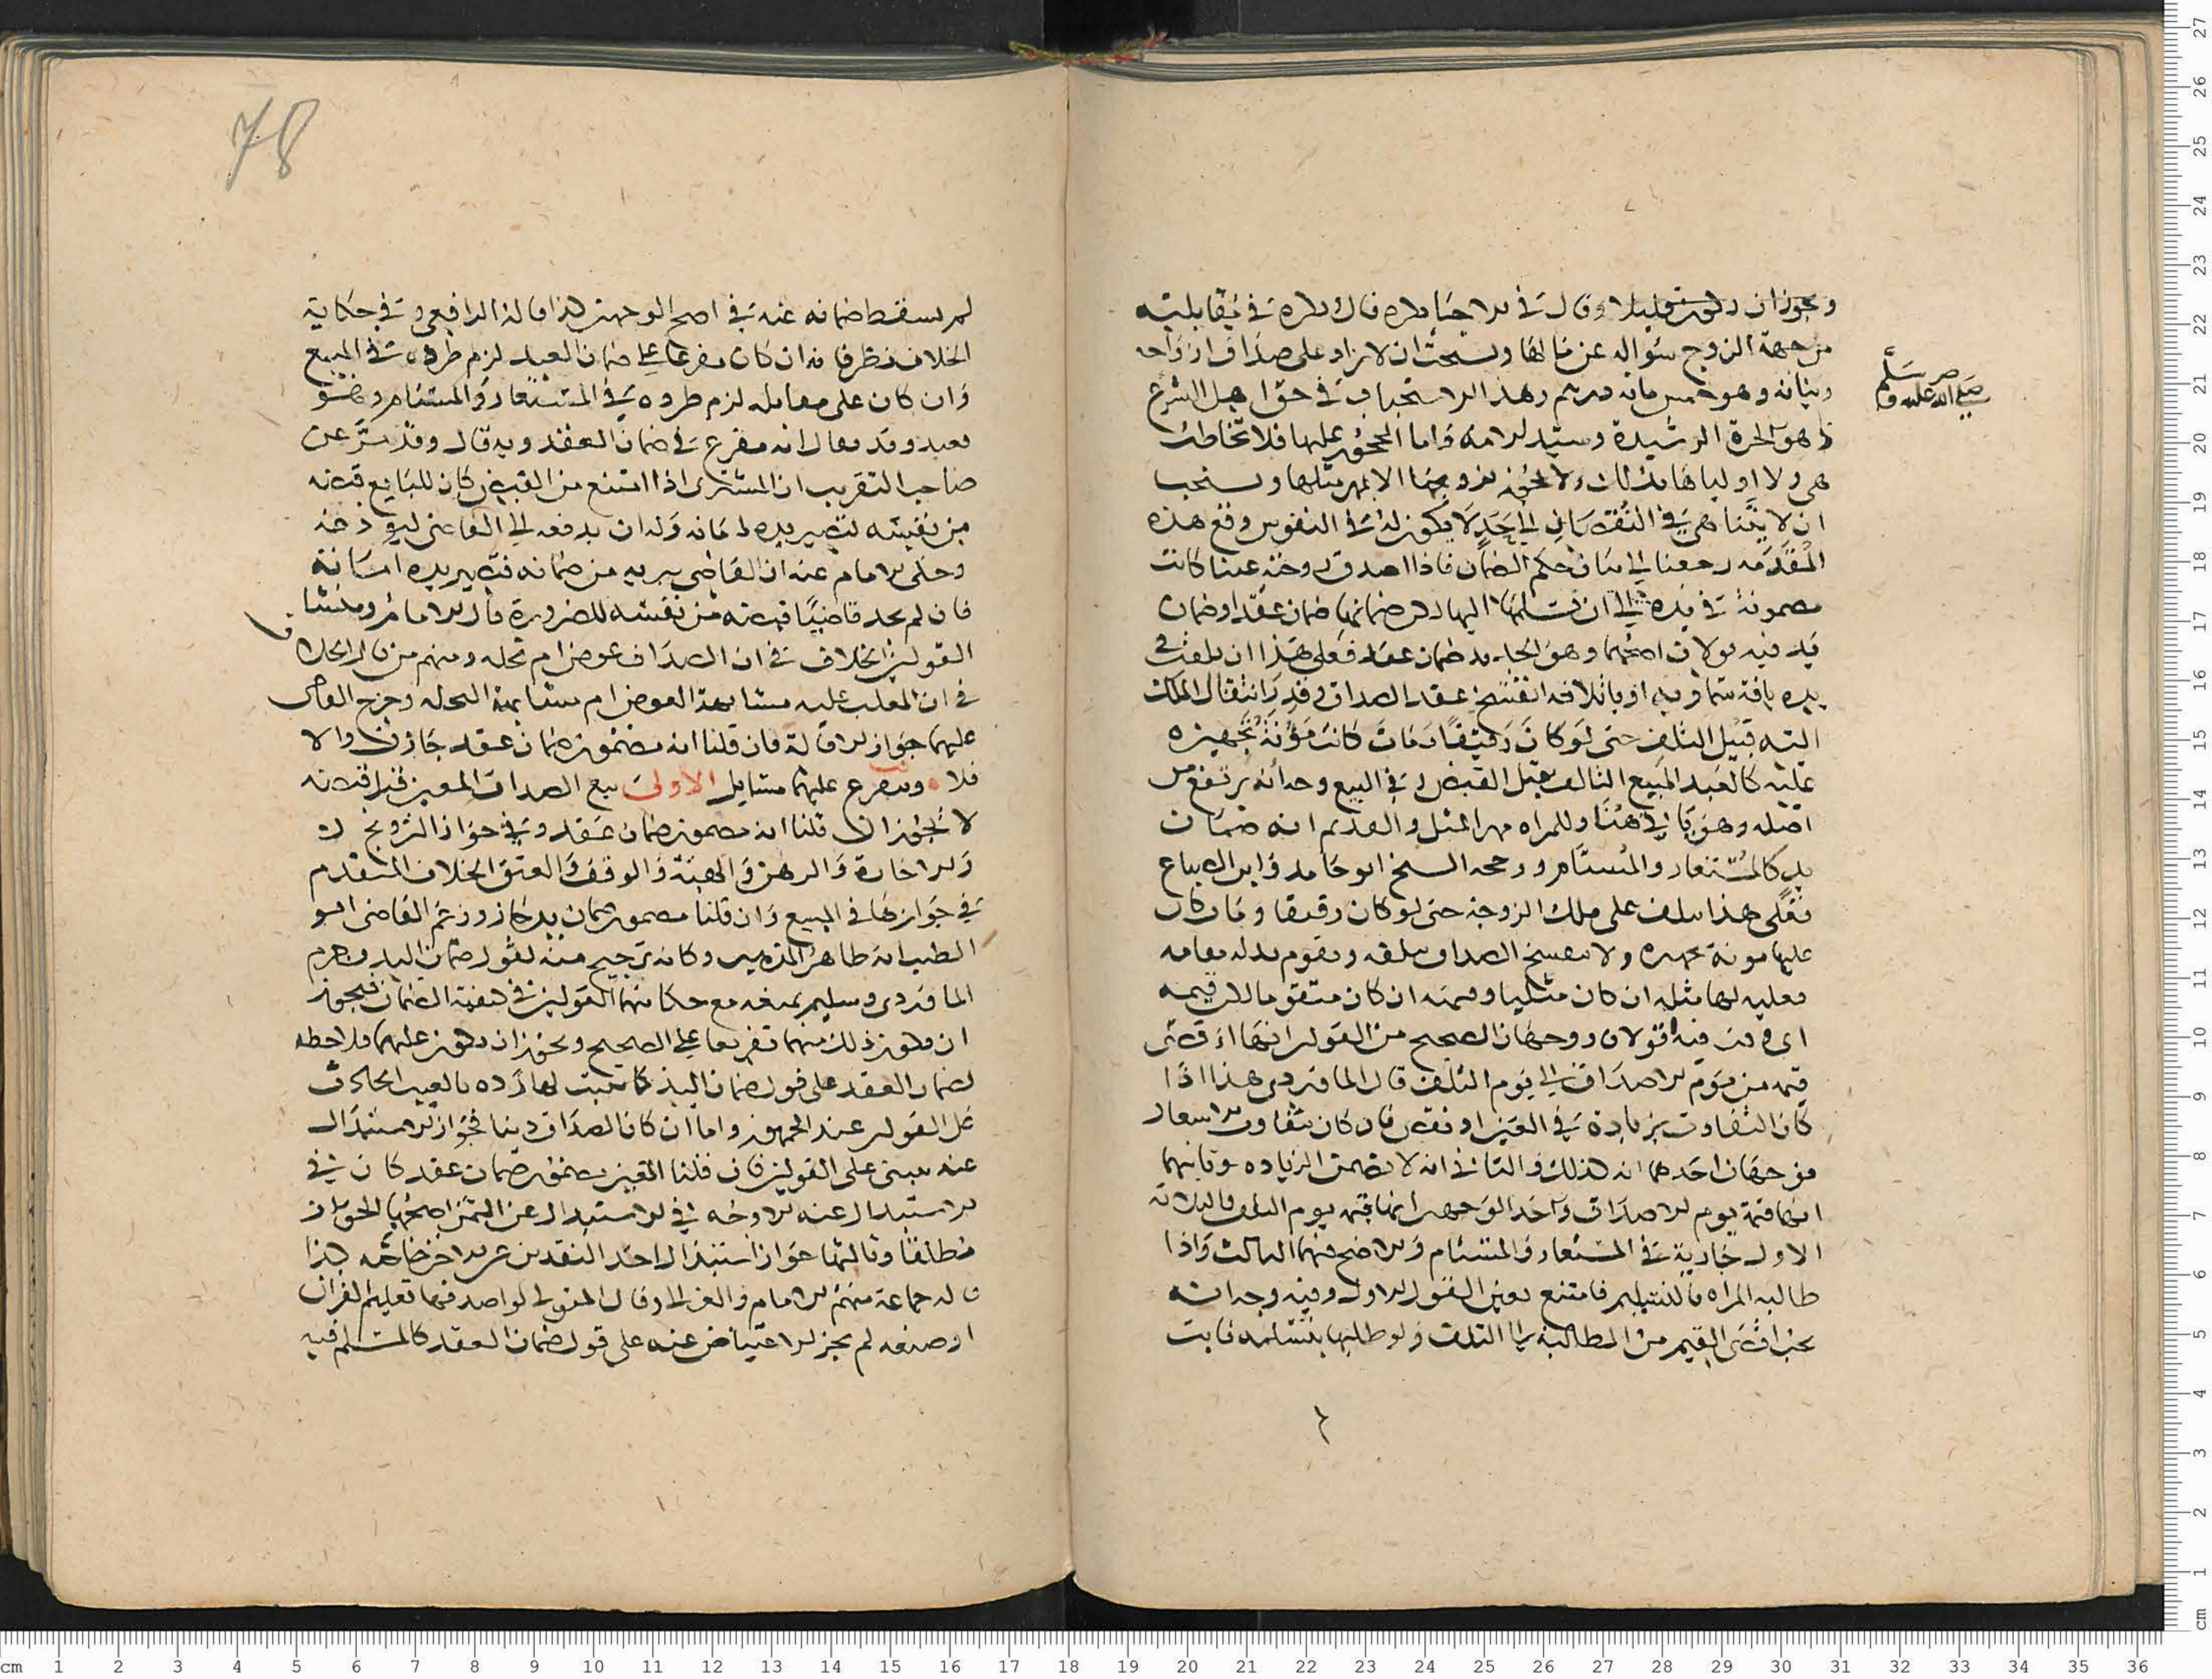 ويجوز ان يكون قليلا وقال في الاحيا يكره قال يكره في مقابلته
من جهة الزوج سؤاله عن مالها ويستحب ان لا يزاد على صداق ازواجه
صلى الله عليه وسلم
وبناته وهو خمس مائة درهم وهذا الاستحباب في حق اهل الشرع
هو الحرة الرشيدة وسيد الامة واما المحجور عليها فلا تخاطب
هي ولا اولياها بذلك ولا يجوز تزويجها الا بمهر مثلها ويستحب
ان لا يتناهى في النقصان الى حد لا يكون له في النفوس وقع هذه
المقدمة رجعنا الى بيان حكم الضمان فاذا اصدق زوجته عينا كانت
مضمونة في يده الى ان يسلمها اليها وهل ضمانها ضمان عقد او ضمان
يد فيه قولان اصحهما وهو الجديد ضمان عقد فعلى هذا ان تلفت في
يده بافة سماوية او باتلافه انفسخ عقد الصداق وقدر انتقال الملك
اليه قبيل التلف حتى لو كان رقيقا ومات كانت مؤنة تجهيزه
عليه كالعبد المبيع التالف قبل القبض وفي البيع وجه انه يرتفع من
اصله وهو هنا وللمراه مهر المثل والقديم انه ضمان
يد كالمستعار والمستام ورجحه الشيخ ابو حامد وابن الصباغ
فعلى هذا يتلف على ملك الزوجة حتى لو كان رقيقا ومات كان
عليها مونة تجهيزه ولا ينفسخ الصداق بتلفه ويقوم بدله مقامه
فعليه لها مثله ان كان مثليا وقيمته ان كان متقوما لكن قيمة
اي وقت فيه قولان ووجهان الصحيح من القولين انها اقصى
قيمه من يوم الاصداق الى يوم التلف قال الماوردي هذا اذا
كان التفاوت بزيادة في العين او نقص فان كان بتفاوت الاسعار
فوجهان احدهما انه كذلك والثاني انه لا يضمن الزياده وثانيهما
انها قيمة يوم الاصداق واحد الوجهين انها قيمة يوم التلف والثلاثة
الاول جارية في المستعار والمستام والاصح فيهما الثالث واذا
طالبته المراه بالتسليم فامتنع تعين القول الاول وفيه وجه انه
يجب اقصى القيم من المطالبة الى التلف ولو طلبها بتسلمه فابت
78
لم يسقط ضمانه عنه في اصح الوجهين كذا قاله الرافعي وفي حكاية
الخلاف نظر فانه ان كان مفرعا على ضمان العقد لزم طرده في المبيع
وان كان على مقابله لزم طرده في المستعار والمستام وهو
بعيد وقد يقال انه مفرع على ضمان العقد وبه قال وقد مر عن
صاحب التقريب ان المشتري اذا امتنع من القبض كان للبايع قبضه
من نفسه لتصير يده امانه وله ان يدفعه الى القاضي ليودعه
وحكى الامام عنه ان القاضي يبريه من ضمانه فتصير يده امانة
فان لم يجد قاضيا قبضه من نفسه للضرورة قال الامام ومنشا
القولين الخلاف في ان الصداق عوض ام نحله ومنهم من قال الخلاف
في ان المغلب عليه مشابهة العوض ام مشابهة النحله وخرج القاضي
عليهما جواز الاقالة فان قلنا انه مضمون ضمان عقد جازت والا
فلا • ويتفرع عليهما مسايل الاولى بيع الصداق المعين قبل قبضه
لا يجوز ان قلنا انه مضمون ضمان عقد وفي جواز التزويج
والاجارة والرهن والهبة والوقف والعتق الخلاف المتقدم
في جوازها في المبيع وان قلنا مضمون ضمان يد جاز وزعم القاضي ابو
الطيب انه ظاهر المذهب وكانه ترجيح منه لقول ضمان اليد وجزم
الماوردي وسليم بمنعه مع حكايتهما القولين في كيفية الضمان فيجوز
ان يكون ذلك منهما تفريعا على الصحيح ويجوز ان يكون عليهما ملاحظه
لضمان العقد على قول ضمان اليد كما يثبت لها رده بالعيب الحادث
على القولين عند الجمهور واما ان كان الصداق دينا فجواز الاستبدال
عنه مبني على القولين فان قلنا المعين مضمون ضمان عقد كان في
الاستبدال عنه الاوجه في الاستبدال عن الثمن اصحها الجواز
مطلقا وثالثها جواز استبدال احد النقدين عن الاخر خاصة كذا
قاله جماعة منهم الامام والغزالي وقال المتولي لو اصدقها تعليم القران
او صنعه لم يجز الاعتياض عنه على قول ضمان العقد كالمسلم فيه